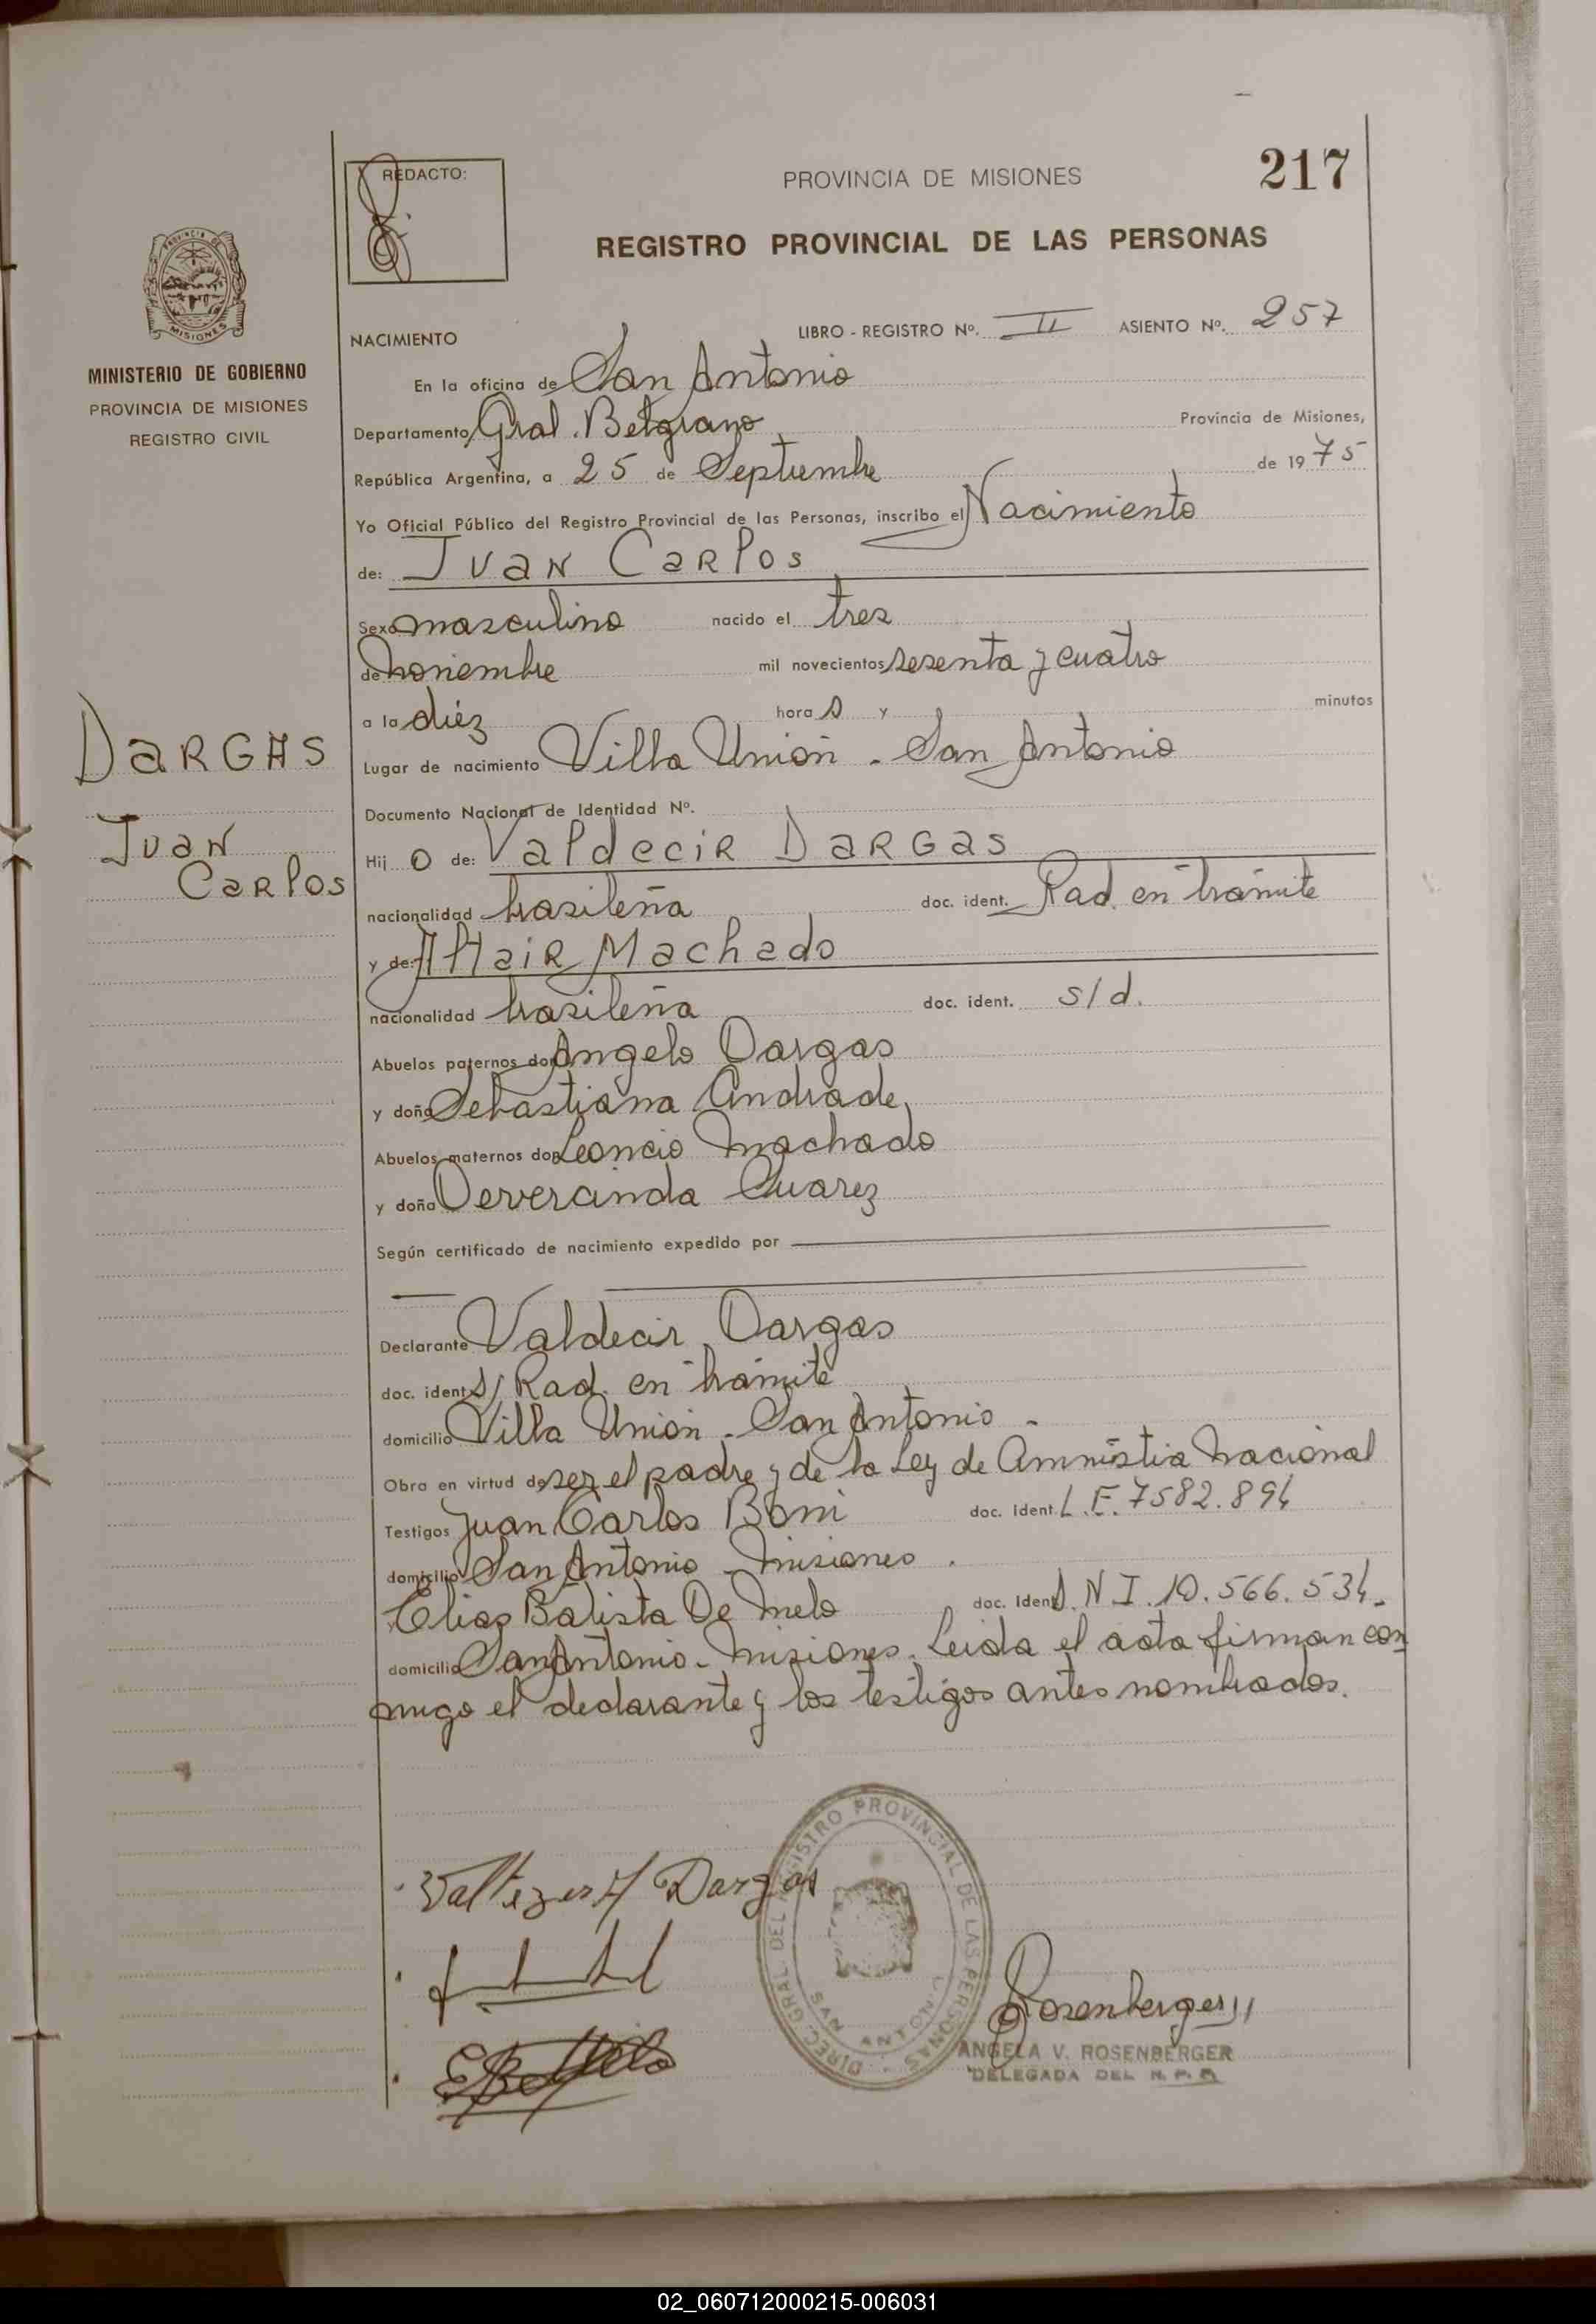 REDACTO:
PROVINCIA DE MISIONES
217
REGISTRO PROVINCIAL DE LAS PERSONAS
PROVINCIA DE
MISIONES
MINISTERIO DE GOBIERNO
PROVINCIA DE MISIONES
REGISTRO CIVIL
NACIMIENTO LIBRO - REGISTRO Nº. II ASIENTO Nº. 257
En la oficina de San Antonio
Departamento Gral. Belgrano Provincia de Misiones,
República Argentina, a 25 de Septiembre de 1975
Yo Oficial Público del Registro Provincial de las Personas, inscribo el Nacimiento
de: Juan Carlos
Sexo masculino nacido el tres
de noviembre mil novecientos sesenta y cuatro
a la diéz hora s y minutos
DARGAS
Juan
Carlos
Lugar de nacimiento Villa Unión - San Antonio
Documento Nacional de Identidad Nº.
Hij o de: Valdecir DARGAS
nacionalidad brasileña doc. ident. Rad. en trámite
y de: Altair Machado
nacionalidad brasileña doc. ident. s/d.
Abuelos paternos don Angelo Dargas
y doña Sebastiana Andrade
Abuelos maternos don Leoncio Machado
y doña Deveranda Suarez
Según certificado de nacimiento expedido por
Declarante Valdecir Dargas
doc. ident s/ Rad. en trámite
domicilio Villa Unión - San Antonio -
Obra en virtud de ser el padre y de la Ley de Amnistia Nacional
Testigos Juan Carlos Boni doc. Ident. L.E. 7582.894
domicilio San Antonio - Misiones.
Elias Batista De Melo doc. Ident D.N.I. 10.566.534.
domicilio San Antonio - Misiones. Leida el acta firman con
migo el declarante y los testigos antes nombrados.
Dargas
DIREC. GRAL. DEL REGISTRO PROVINCIAL DE LAS PERSONAS
SAN ANTONIO
Rosenberger
ANGELA V. ROSENBERGER
DELEGADA DEL R. P. P.
02_060712000215-006031